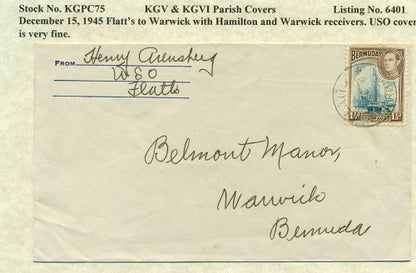 Stock No. KGPC75 KGV & KGVI Parish Covers Listing No. 6401
December 15, 1945 Flatt's to Warwick with Hamilton and Warwick receivers. USO cover
is very fine.
Henry Arensberg
FROM USO
Flatts
BERMUDA
Belmont Manor,
Warwick
Bermuda